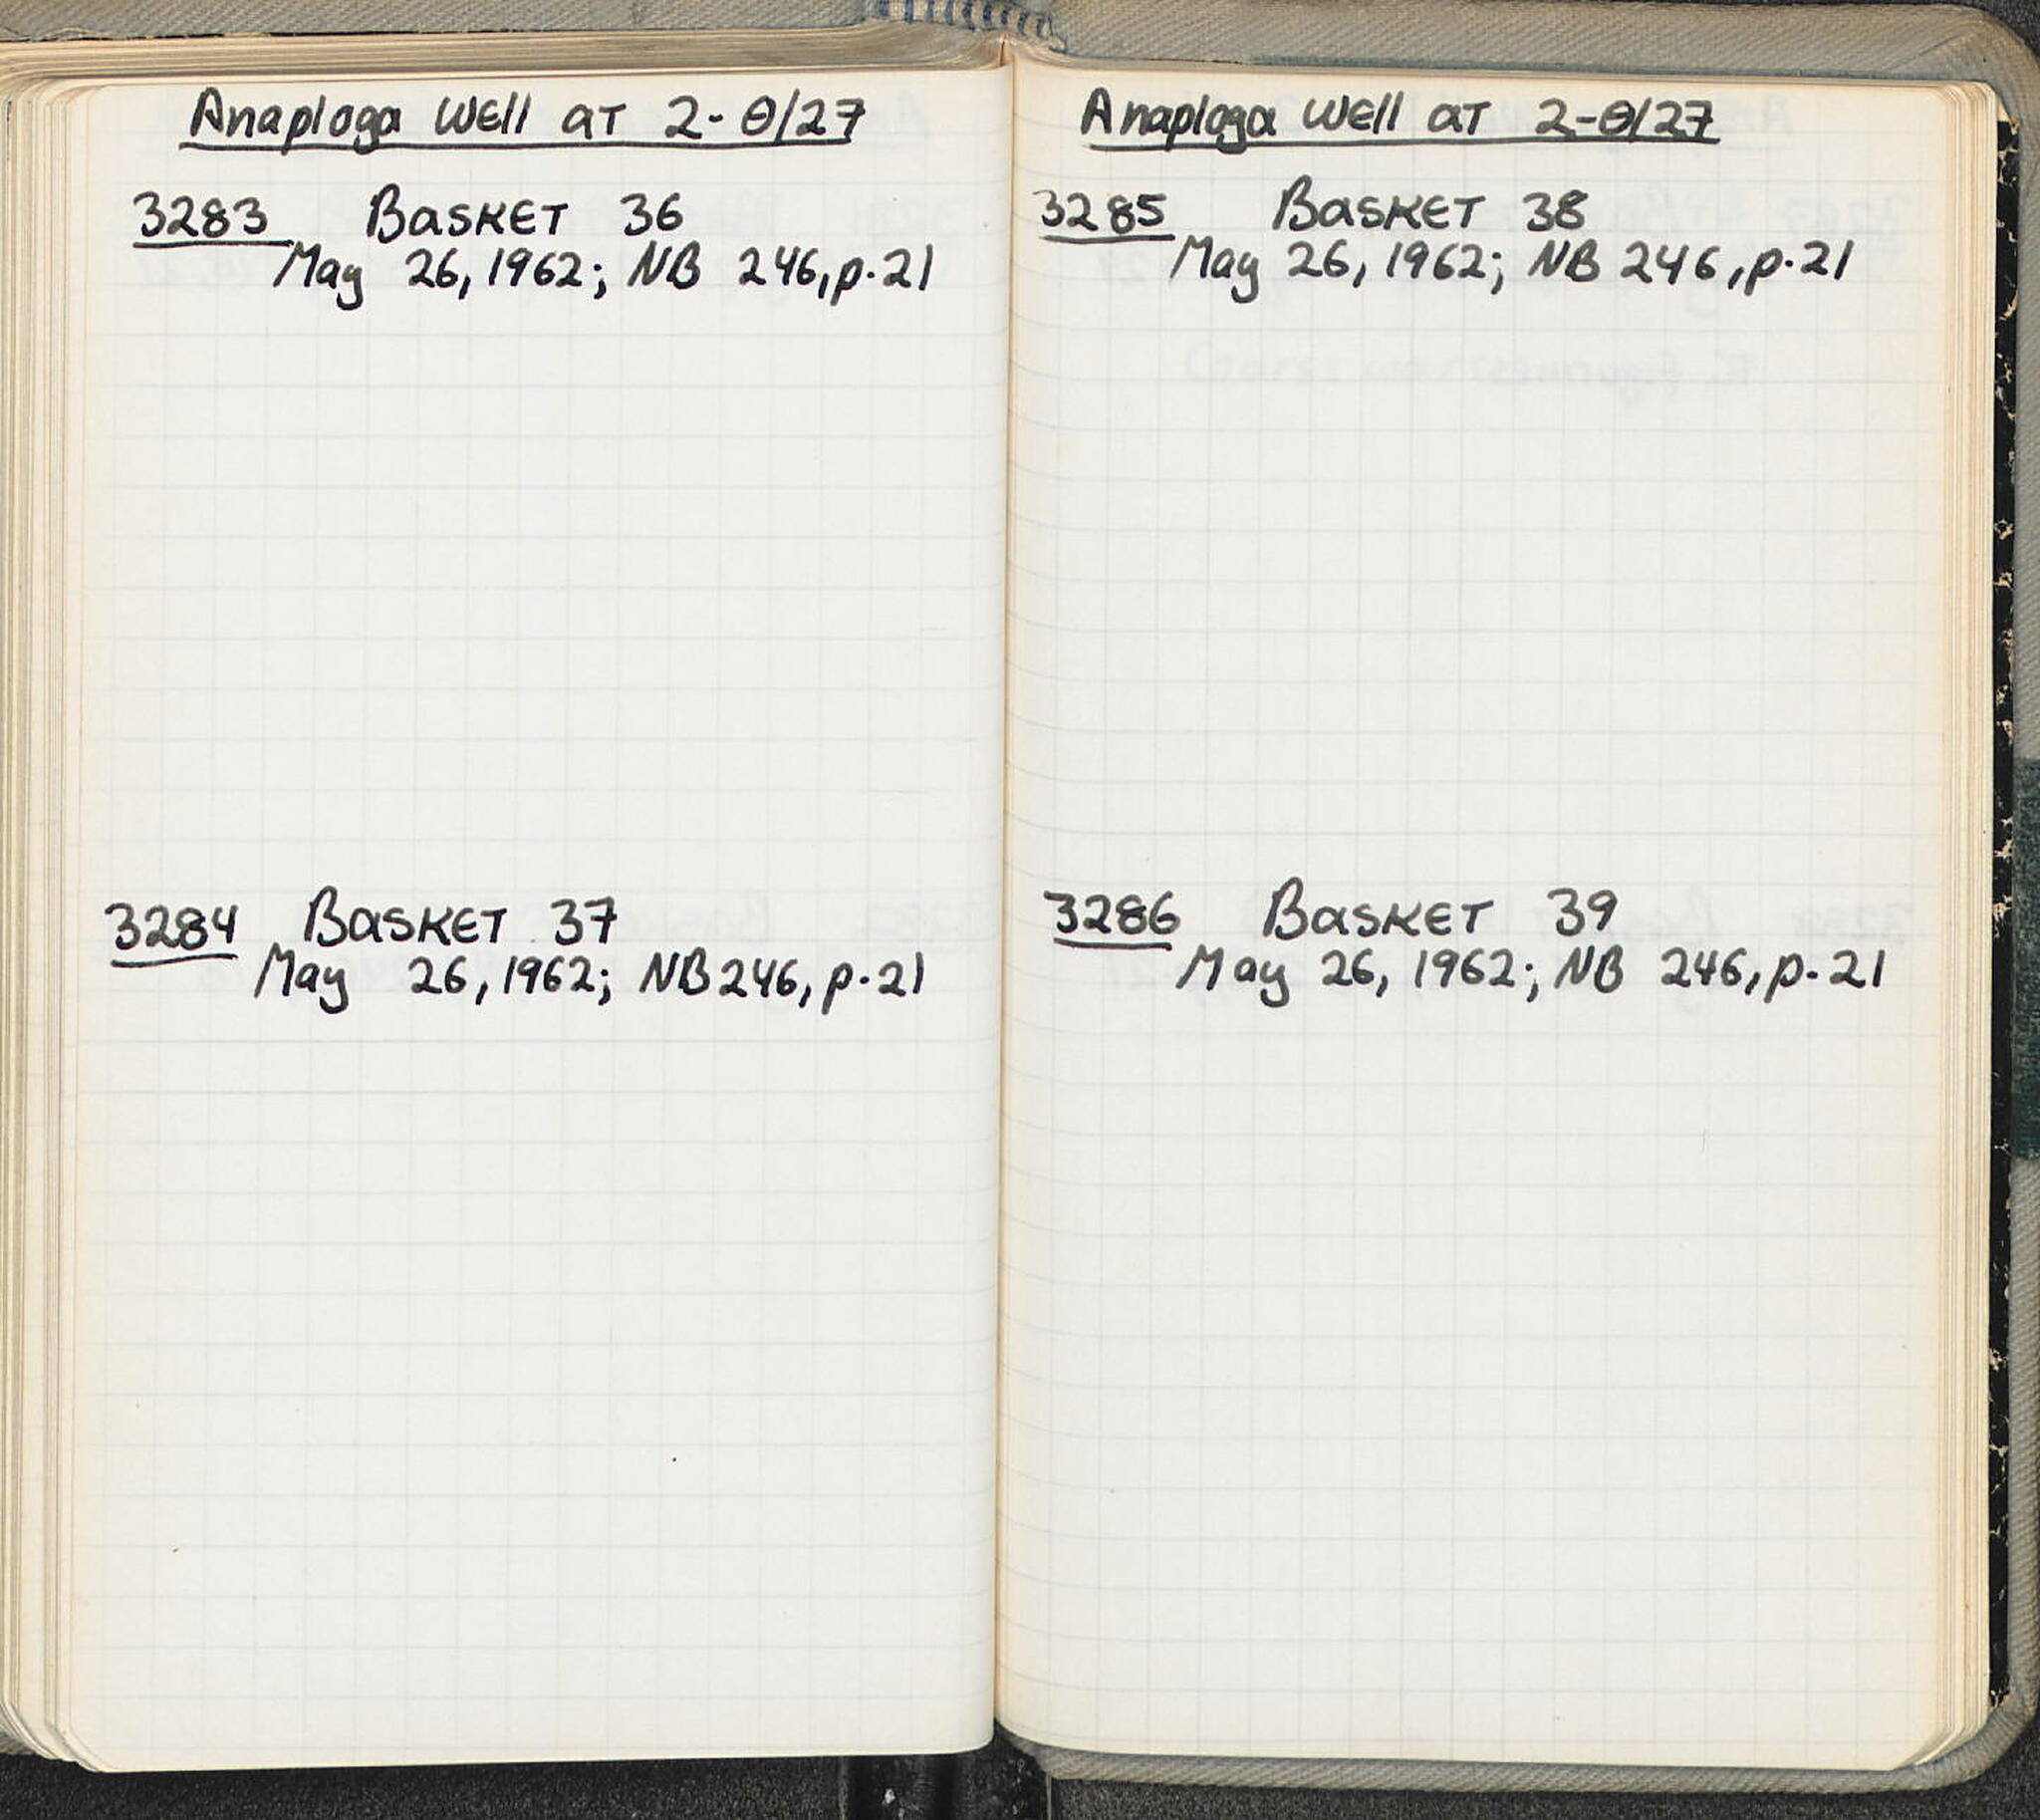 Anaploga Well at 2-θ/27
3283 Basket 36
May 26, 1962; NB 246, p.21
3284 Basket 37
May 26, 1962; NB 246, p.21
Anaploga Well at 2-θ/27
3285 Basket 38
May 26, 1962; NB 246, p.21
3286 Basket 39
May 26, 1962; NB 246, p.21